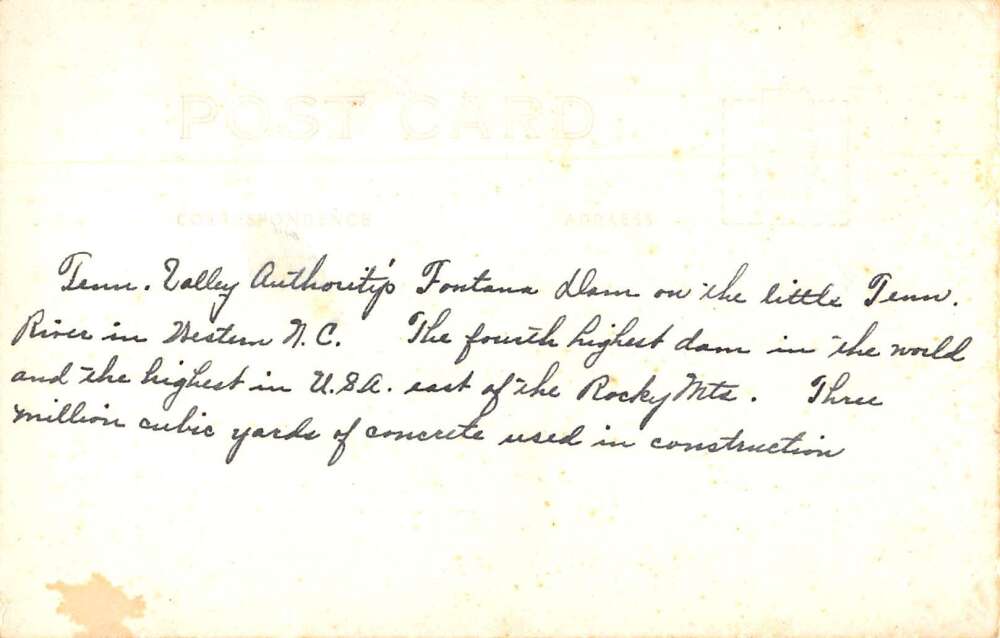 POST CARD
CORRESPONDENCE ADDRESS
Tenn. Valley Authority's Fontana Dam on the little Tenn.
River in Western N.C. The fourth highest dam in the world
and the highest in U.S.A. east of the Rocky Mts. Three
million cubic yards of concrete used in construction